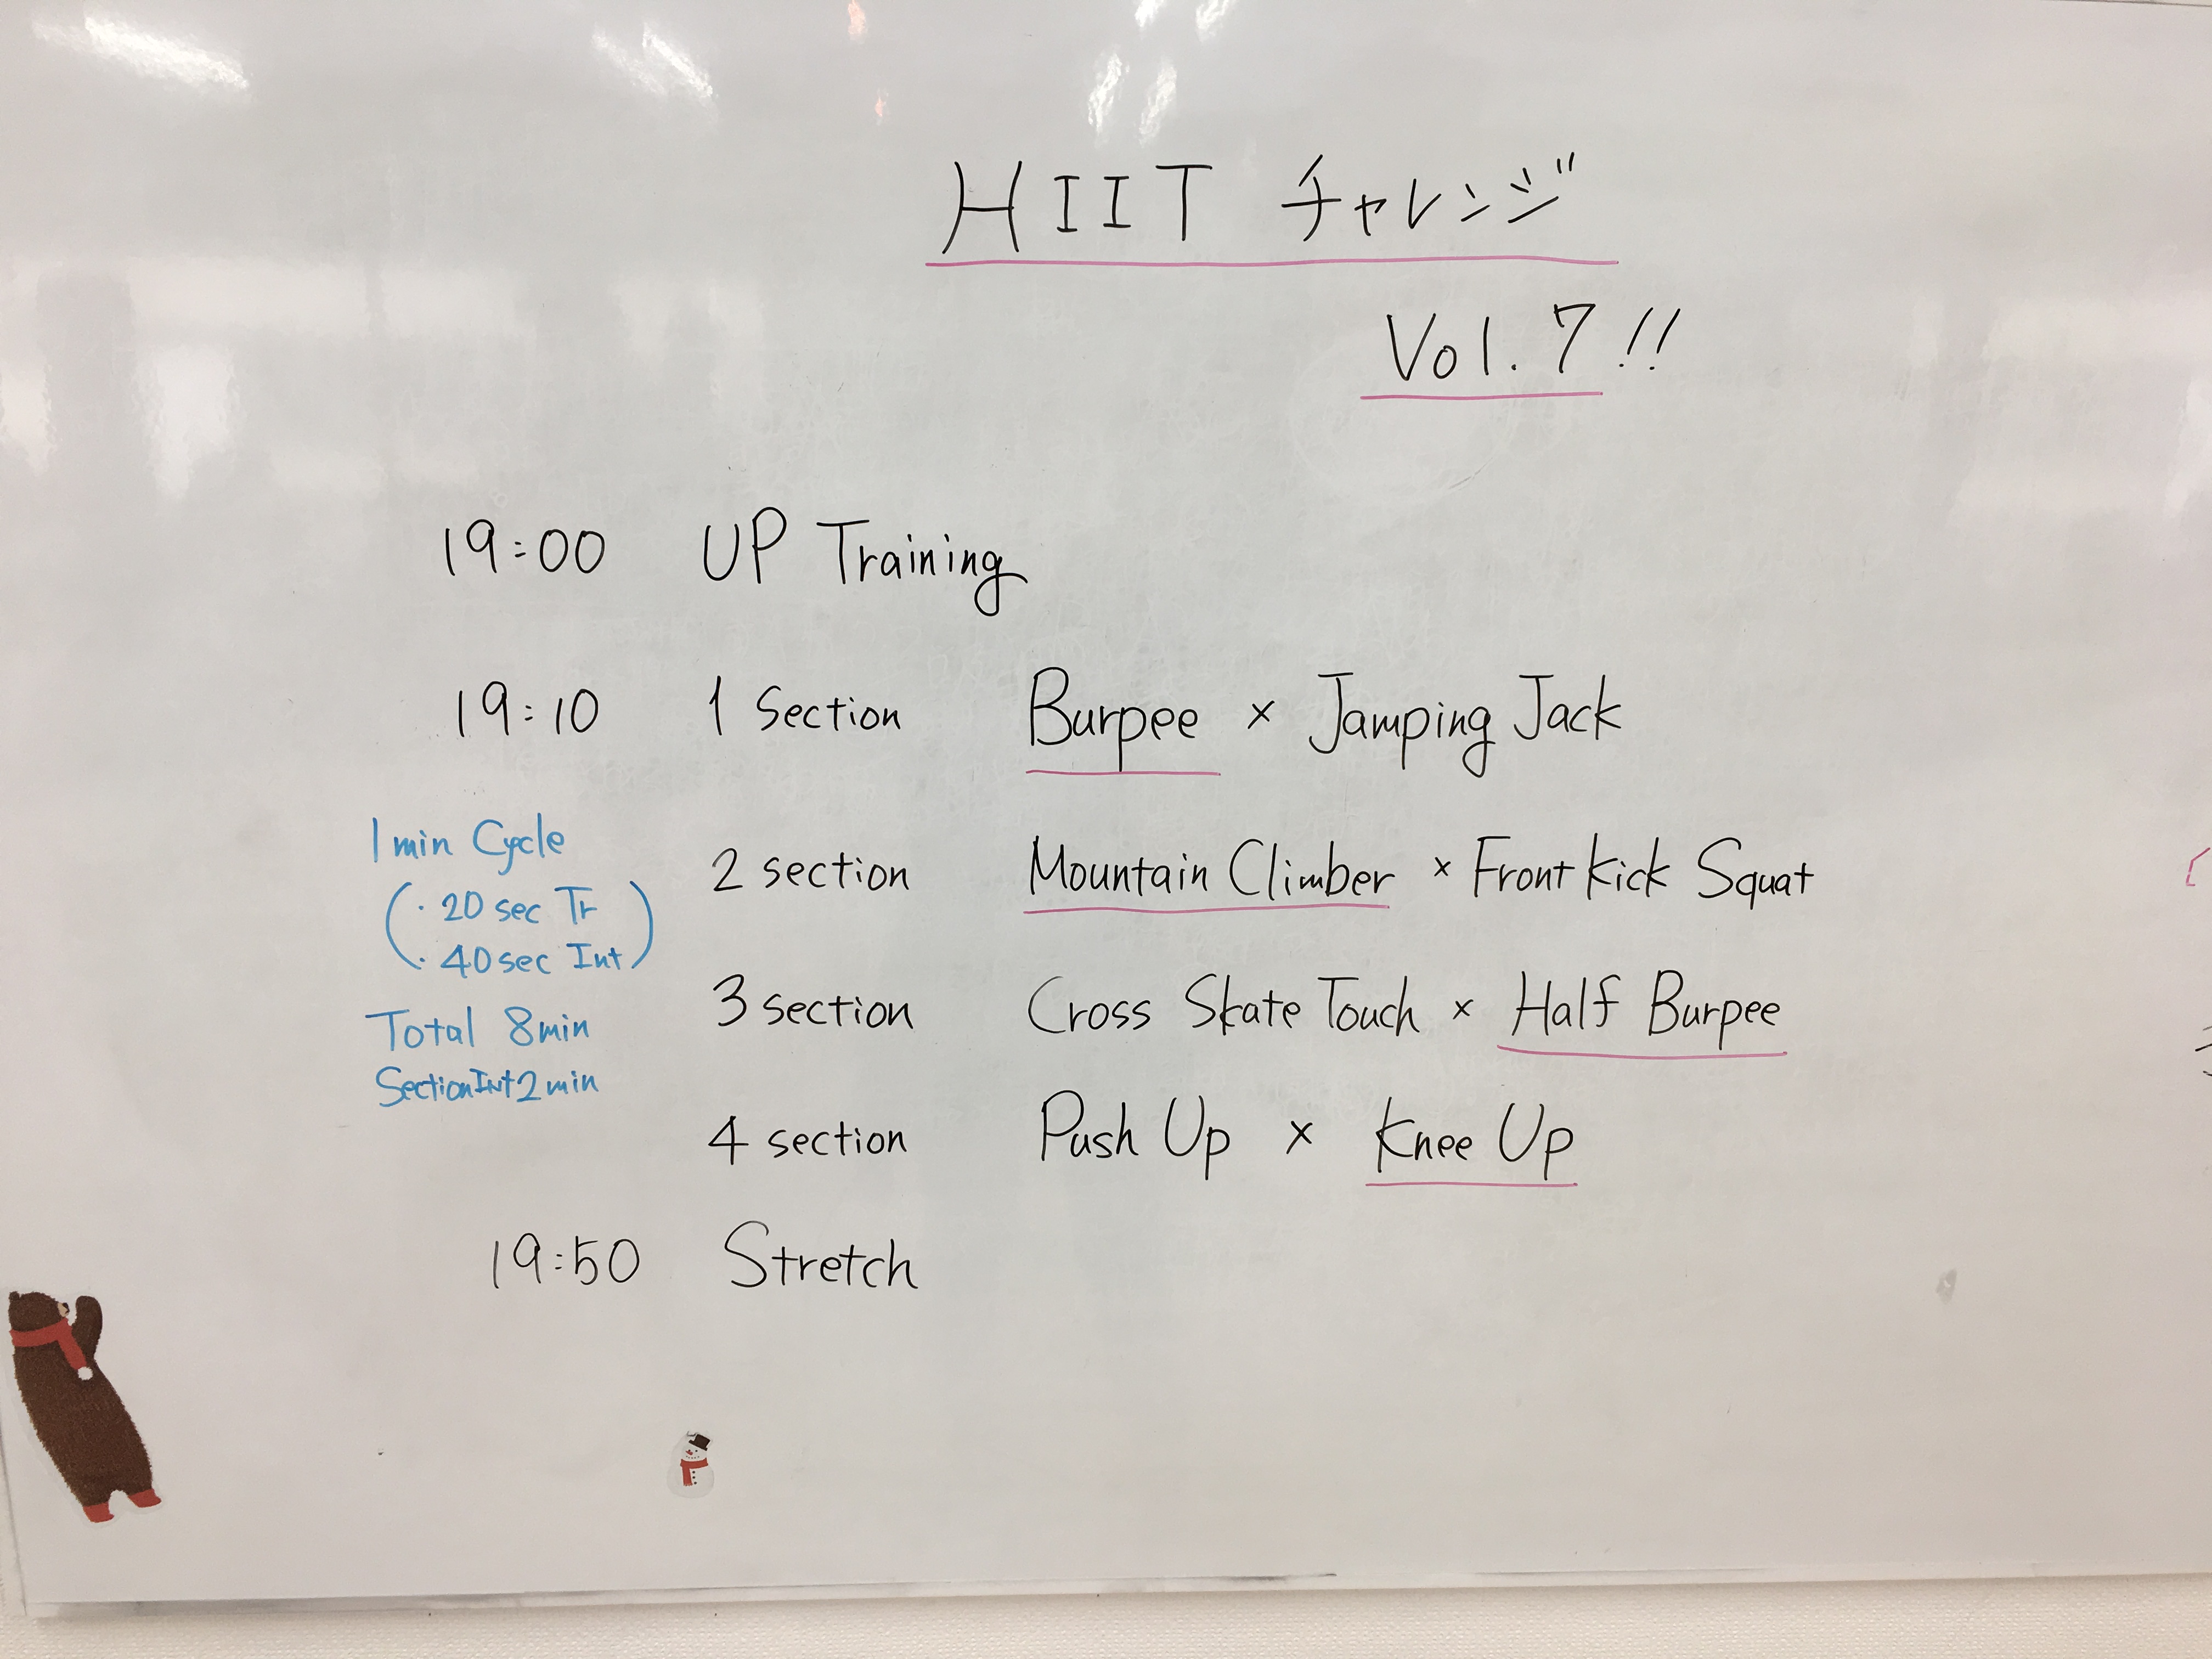 HIIT チャレンジ
Vol.7!!
19:00 UP Training
19:10 1 Section Burpee × Jamping Jack
1min Cycle
(・20sec Tr
・40sec Int)
Total 8min
SectionInt2min
2 section Mountain Climber × Front Kick Squat
3 section Cross Skate Touch × Half Burpee
4 section Push Up × Knee Up
19:50 Stretch